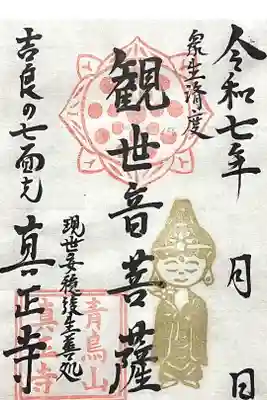 令和七年 月 日
衆生済度
観世音菩薩
現世安穏後生善処
吉良の七面さん
真正寺
青鳥山
真正寺